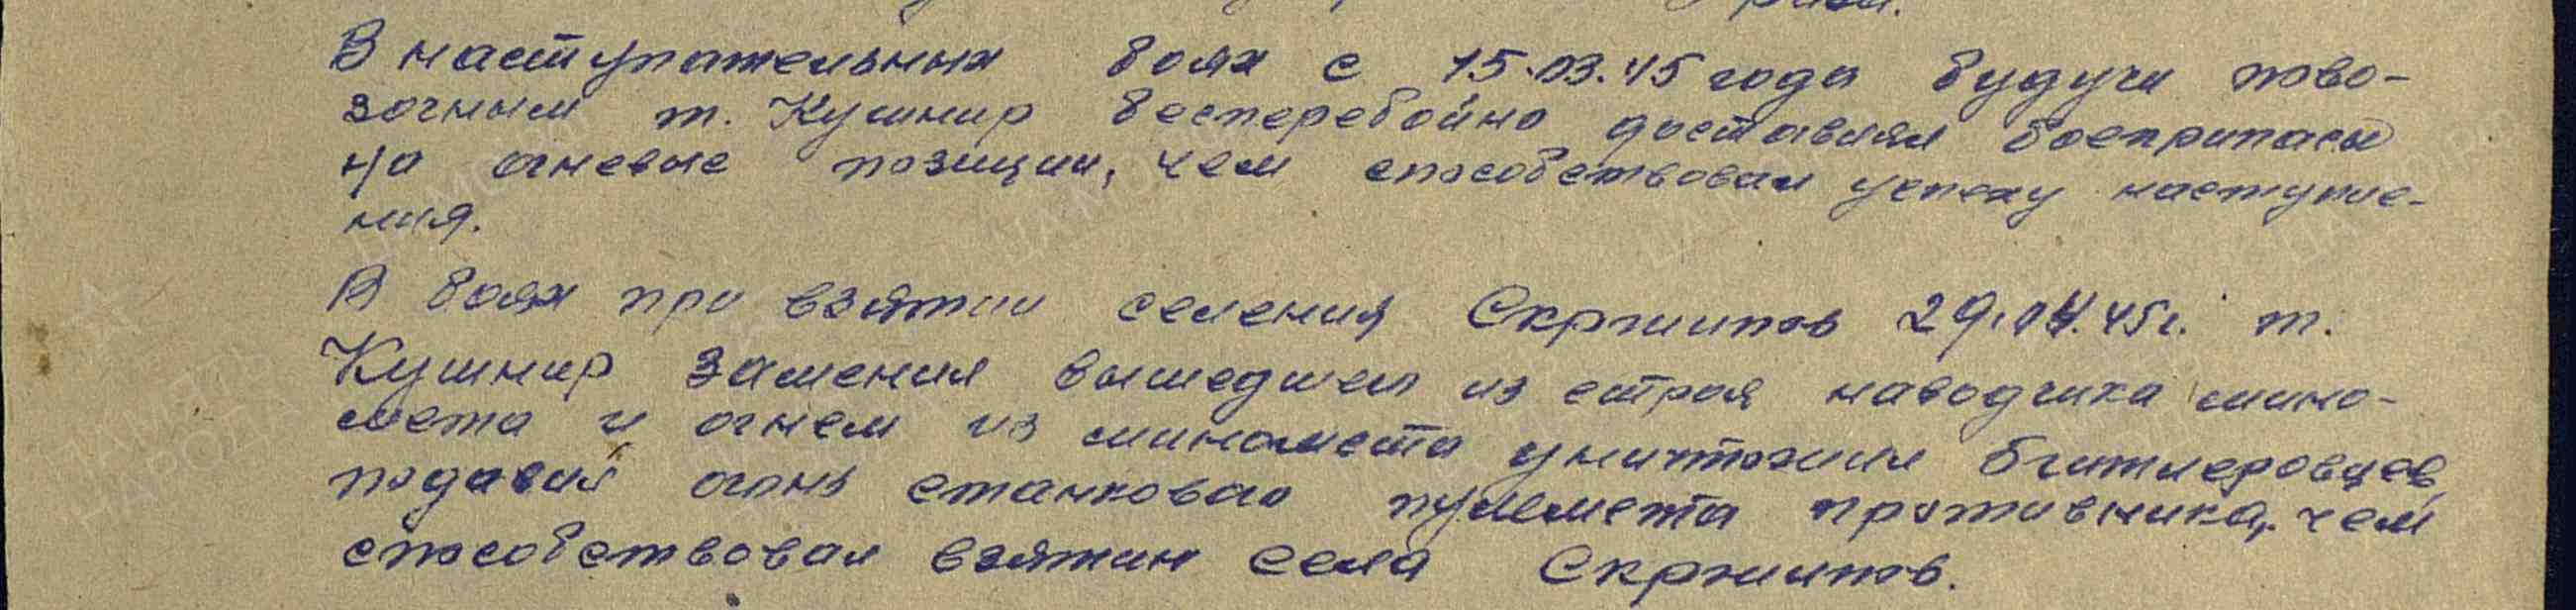 В наступательных боях с 15.03.45 года будучи пово-
зочным т. Кушнир бесперебойно доставлял боеприпасы
на огневые позиции, чем способствовал успеху наступле-
ния.
В боях при взятии селения Скржипов 29.04.45 г. т.
Кушнир заменил вышедшего из строя наводчика мино-
мета и огнем из миномета уничтожил 6 гитлеровцев,
подавил огонь станкового пулемета противника, чем
способствовал взятию села Скржипов.